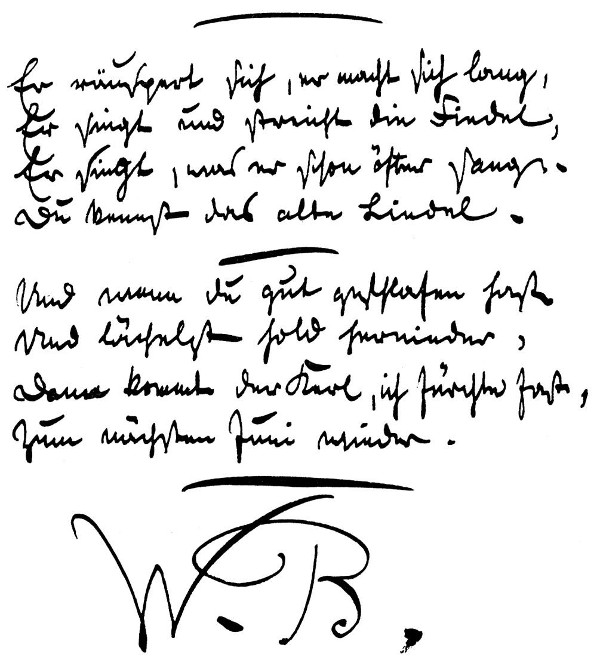 Er räuspert sich, er macht sich lang,
Er singt und streicht die Fiedel,
Er singt, was er schon öfter sang. –
Du kennst das alte Liedel.
Und wenn du gut geschlafen hast
Und lächelst hold hernieder,
Dann kommt der Kerl, ich fürchte fast,
Zum nächsten Juni wieder.
W. B.